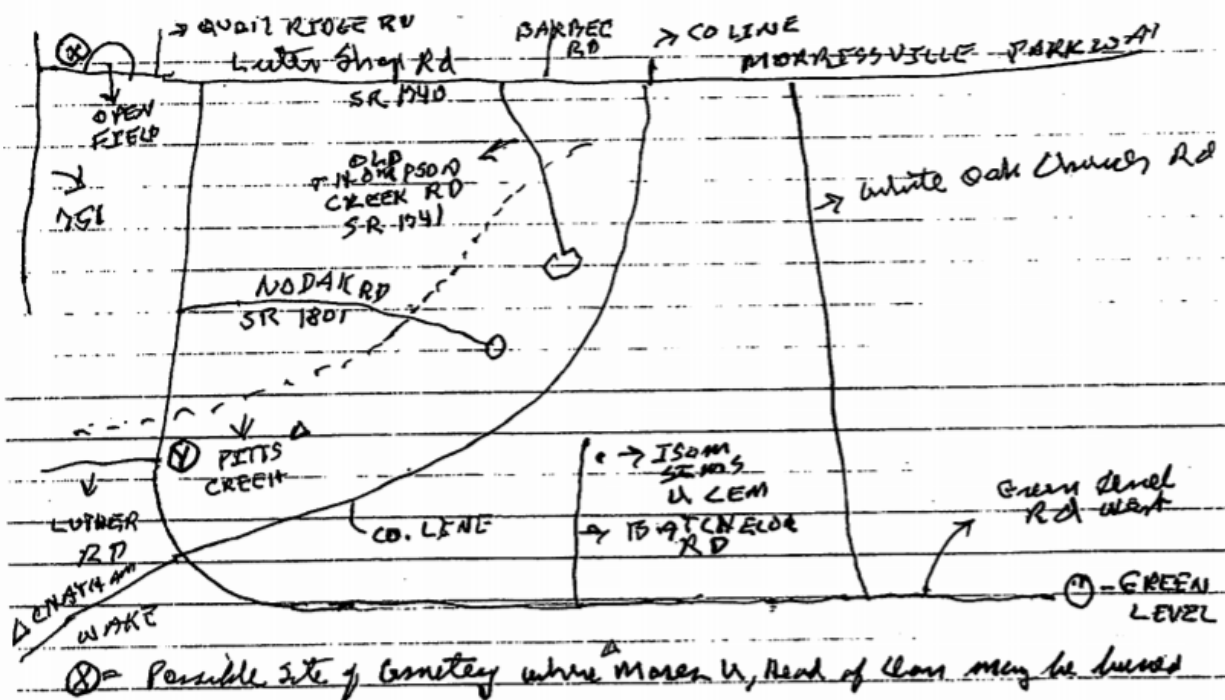 X
→ QUAIL RIDGE RD
BARBEC
RD
→ CO LINE
Luter Shop Rd
MORRISSVILLE PARKWAY
SR 1740
OPEN
FIELD
OLD
THOMPSON
CREEK RD
SR 1741
→ White Oak Church Rd
751
NODAK RD
SR 1801
Y
PITTS
CREEK
→ ISOM
SIMS
U CEM
→ BATCHELOR
RD
Green Level
Rd West
LUTHER
RD
CO. LINE
CHATHAM
WAKE
- GREEN
LEVEL
X = Possible Site of Cemetery where Moses U, Head of Clan may be buried